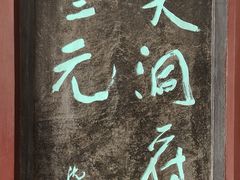 天洞府
三元